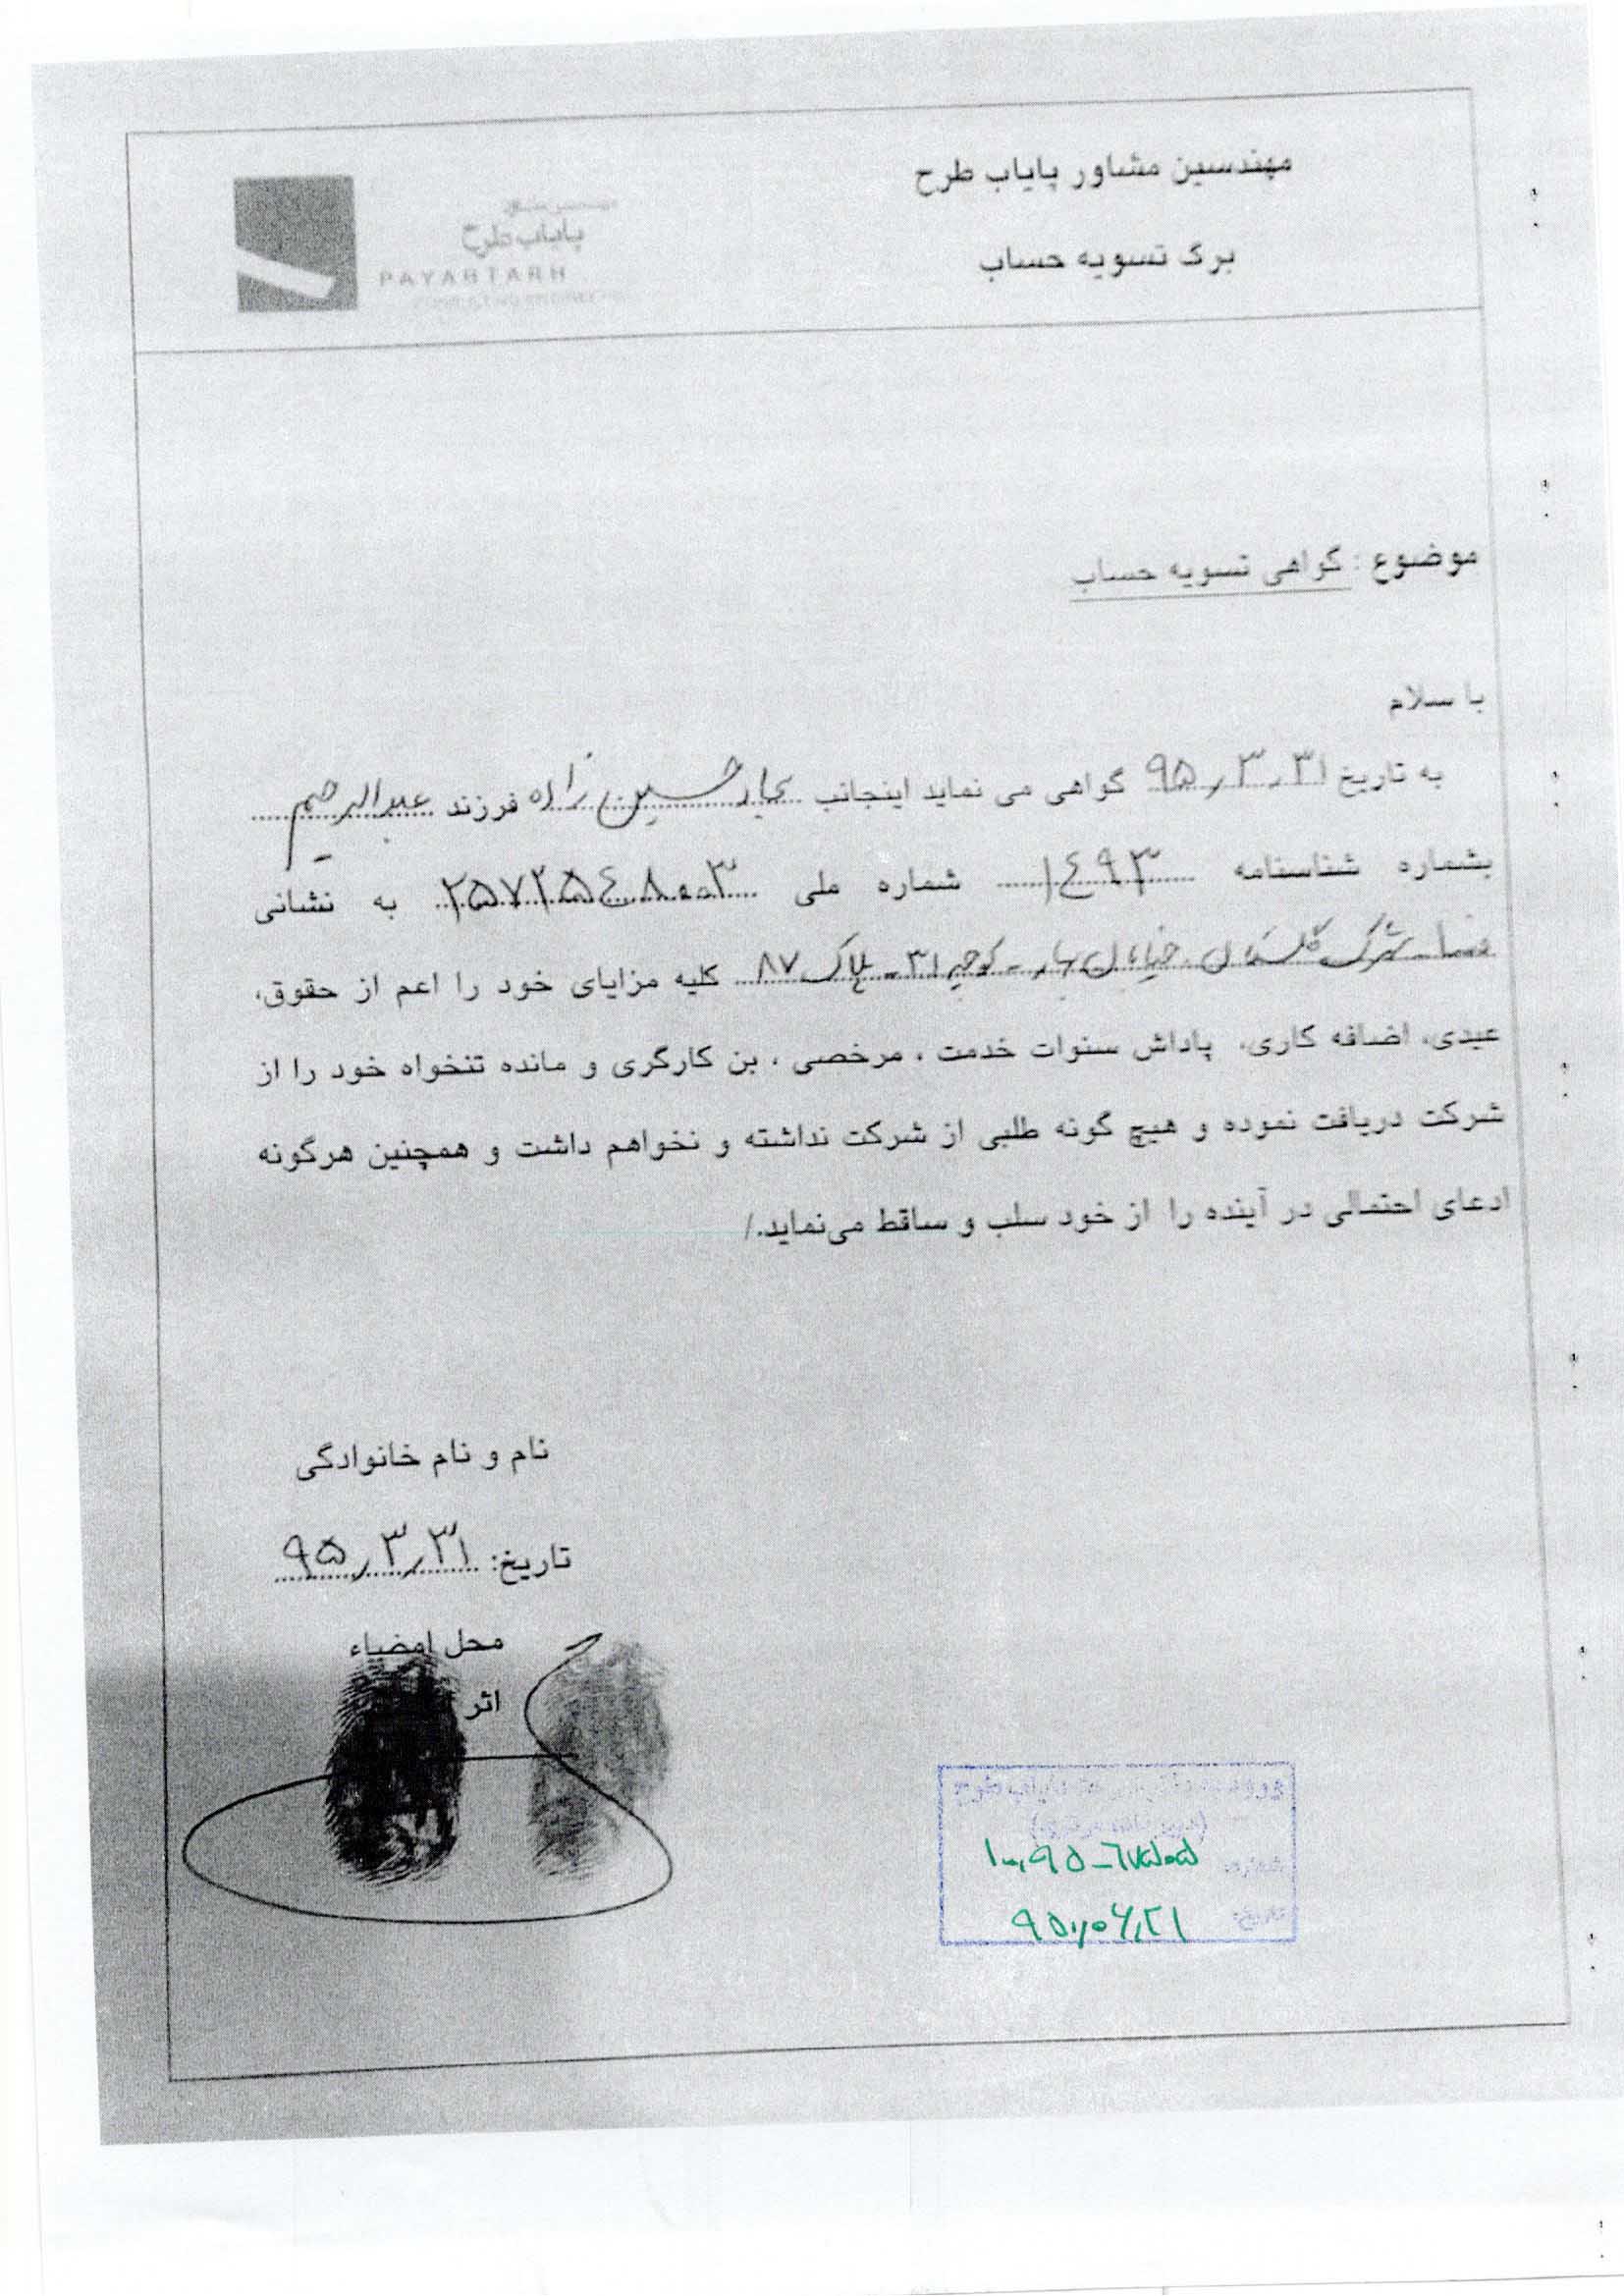 مهندسین مشاور پایاب طرح
برگ تسویه حساب
پایاب طرح
PAYABTARH
موضوع : گواهی تسویه حساب
با سلام
به تاریخ ۹۵٫۳٫۳۱ گواهی می نماید اینجانب حسین زاده فرزند عبدالرحیم
بشماره شناسنامه ۱۴۹۳ شماره ملی ۲۵۷۲۵۴۸۰۰۳ به نشانی
فسا - شهرک گلستان خیابان بهار - کوچه ۳۱ - پلاک ۸۷ کلیه مزایای خود را اعم از حقوق،
عیدی، اضافه کاری، پاداش سنوات خدمت ، مرخصی ، بن کارگری و مانده تنخواه خود را از
شرکت دریافت نموده و هیچ گونه طلبی از شرکت نداشته و نخواهم داشت و همچنین هرگونه
ادعای احتمالی در آینده را از خود سلب و ساقط می‌نماید./
نام و نام خانوادگی
تاریخ: ۹۵٫۳٫۳۱
محل امضاء
اثر
پایاب طرح
شماره:
تاریخ: ۹۵٫۰۶٫۲۱